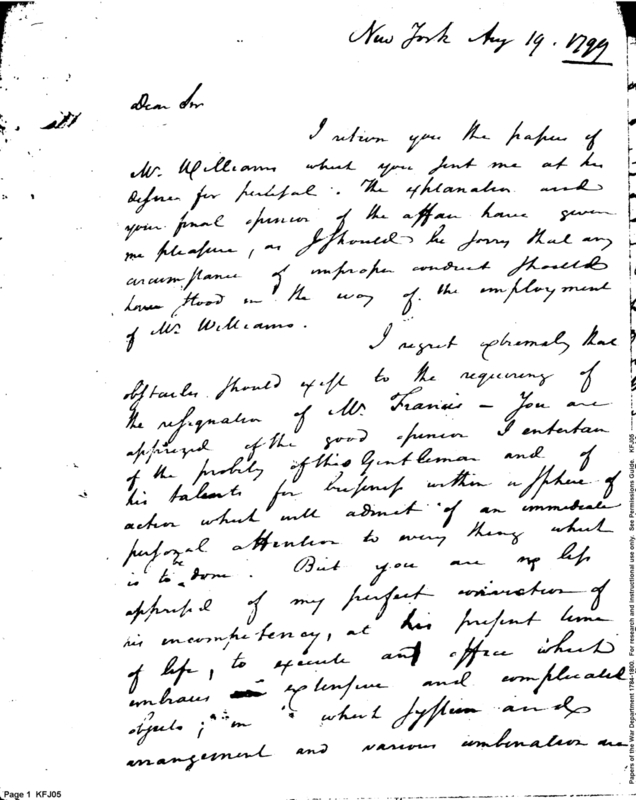 New York Aug 19. 1799
Dear Sir
I return you the papers of
Mr. Williams which you sent me at his
desire for perusal. The explanation and
your final opinion of the affair have given
me pleasure, as I should be sorry that any
circumstance of improper conduct should
have stood in the way of the employment
of Mr. Williams.
I regret extremely that
obstacles should exist to the requiring of
the resignation of Mr. Francis — You are
apprized of the good opinion I entertain
of the probity of this Gentleman and of
his talents for business within a sphere of
action which will admit of an immediate
personal attention to every thing which
is to be done. But you are no less
apprised of my perfect conviction of
his incompetency, at his present time
of life, to execute an office which
embraces extensive and complicated
objects; in which system and
arrangement and various combination are
Page 1 KFJ05
Papers of the War Department 1784-1800. For research and instructional use only. See Permissions Guide. KFJ05